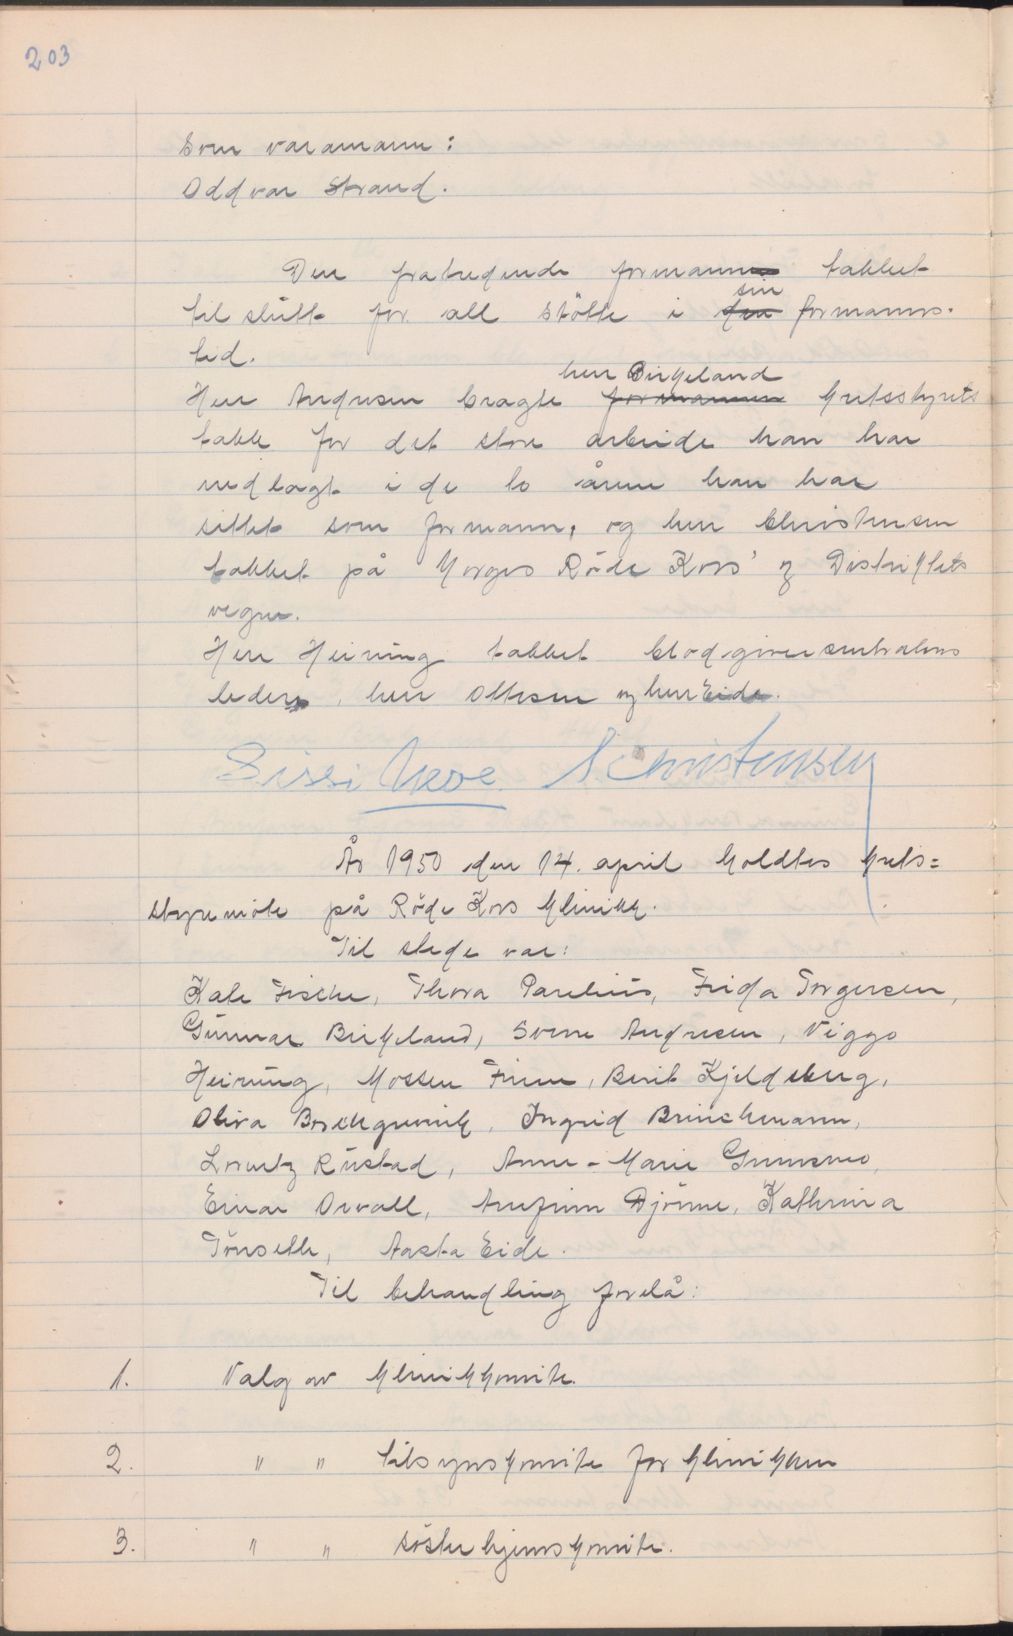 203
Som varamann:
Oddvar Strand.
Den fratredende formannen takket
sin
til slutt for all stötte i den formanns-
tid.
herr Birkeland
Herr Andresen bragte formannen kretsstyrets
takk for det store arbeide han har
nedlagt i de to årene han har
sittet som formann, og herr Christensen
takket på Norges Röde Kors' og Distriktets
vegne.
Herr Heining takket blodgiversentralens
leder, herr Ottesen og herr Eide.
Sissi S. Christensen
År 1950 den 14. april holdtes krets=
styremöte på Röde Kors klinikk.
Til stede var:
Kale Fische, Thora Parelius, Frida Torgersen,
Gunnar Birkeland, Sverre Andresen, Viggo
Heining, Mossen Finne, Berit Kjeldsberg,
Oliva Borchgrevink, Ingrid Brinchmann,
Lorentz Rustad, Anne-Marie
Einar Orvall, Arnfinn Djönne, Kathrina
Tönseth, Aasta Eide.
Til behandling forelå:
1. Valg av klinikkomite.
2. " " tilsynskomite for klinikken
3. " " sösterhjemskomite.